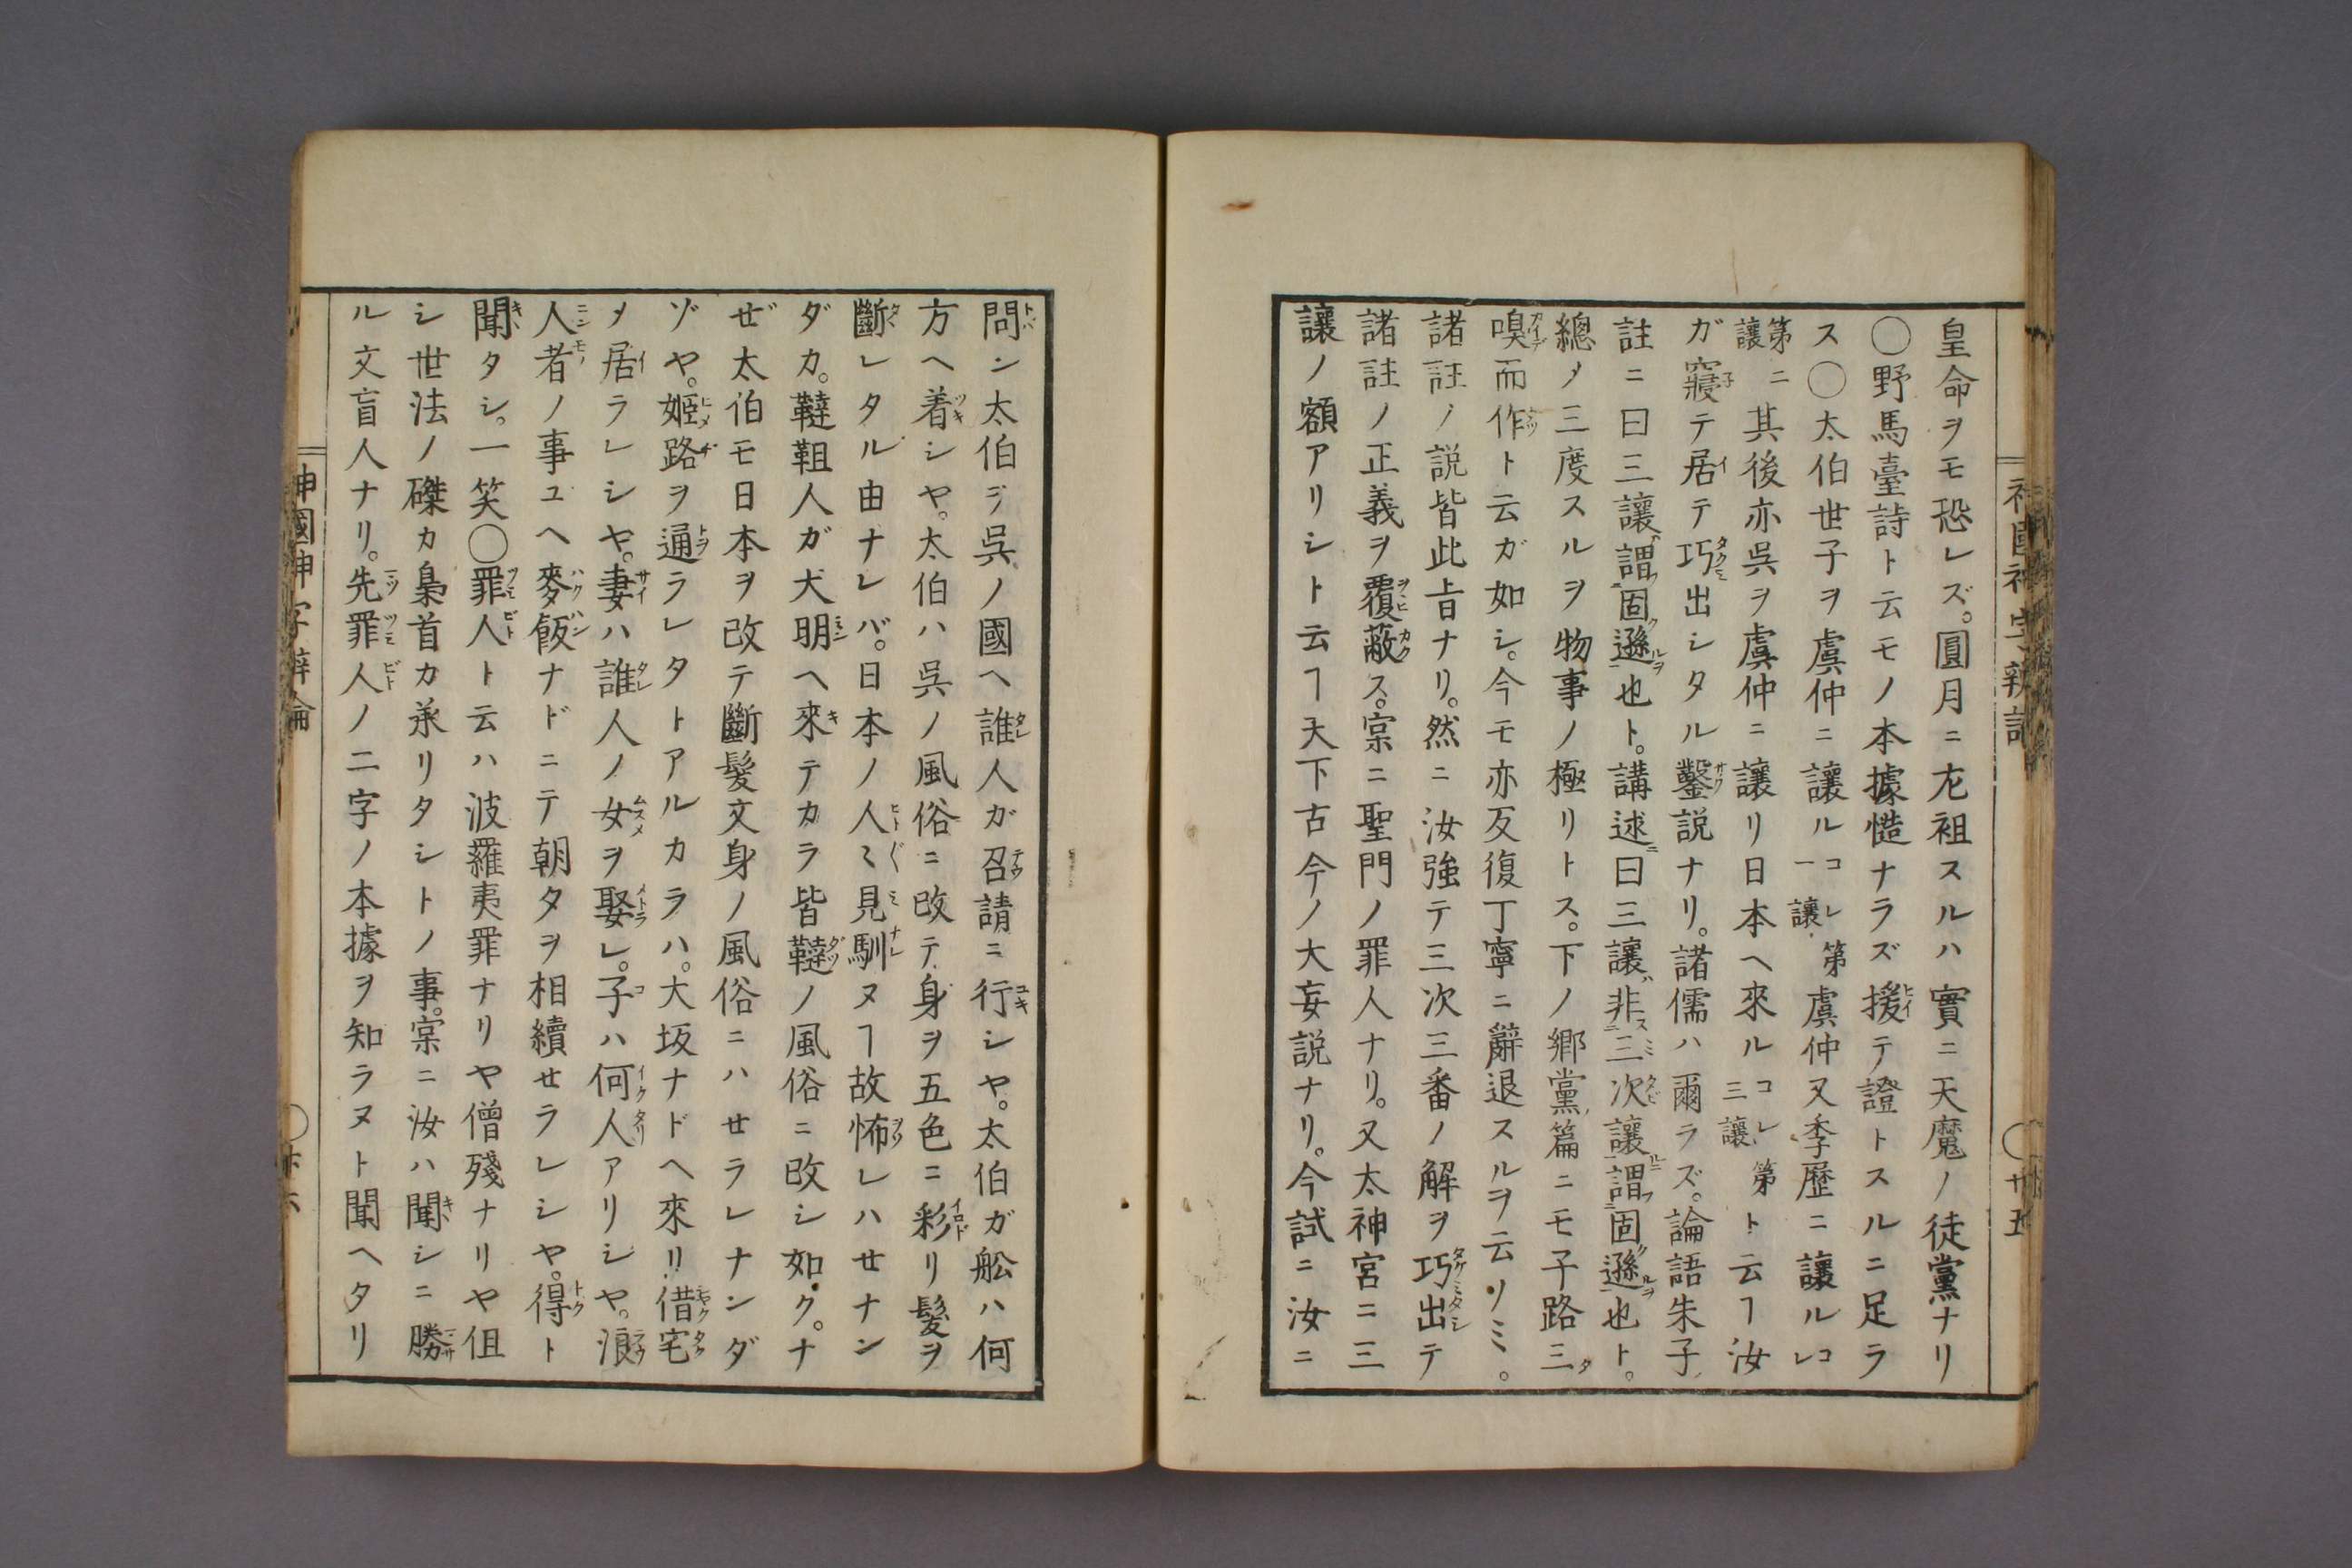 皇命ヲモ恐レズ。圓月ニ左袒スルハ實ニ天魔ノ徒黨ナリ
〇野馬臺詩ト云モノ本據慥ナラズ援テ證トスルニ足ラ
ス〇太伯世子ヲ虞仲ニ讓ルコレ第一讓虞仲又季歷ニ讓ルコレ
第二讓其後亦呉ヲ虞仲ニ讓リ日本ヘ來ルコレ第三讓ト云ヿ汝
ガ寢テ居テ巧出シタル鑿説ナリ。諸儒ハ爾ラズ。論語朱子
註ニ曰三讓謂固遜也ト。講述曰三讓非三次讓謂固遜也ト。
總メ三度スルヲ物事ノ極リトス。下ノ郷黨篇ニモ子路三
嗅而作ト云ガ如シ。今モ亦反復丁寧ニ辭退スルヲ云ノミ。
諸註ノ説皆此旨ナリ。然ニ汝強テ三次三番ノ解ヲ巧出テ
諸註ノ正義ヲ覆蔽ス。寔ニ聖門ノ罪人ナリ。又太神宮ニ三
讓ノ額アリシト云ヿ天下古今ノ大妄説ナリ。今試ニ汝ニ
〇廿五
問ン太伯ヲ呉ノ國ヘ誰人ガ召請ニ行シヤ。太伯ガ舩ハ何
方ヘ着シヤ。太伯ハ呉ノ風俗ニ改テ身ヲ五色ニ彩リ髮ヲ
斷レタル由ナレバ。日本ノ人〻見馴ヌヿ故怖レハセナン
ダカ。韃靼人ガ大明ヘ來テカラ皆韃ノ風俗ニ改シ如ク。ナ
ゼ太伯モ日本ヲ改テ斷髮文身ノ風俗ニハセラレナンダ
ゾヤ。姫路ヲ通ラレタトアルカラハ。大坂ナドヘ來リ借宅
メ居ラレシヤ。妻ハ誰人ノ女ヲ娶レ。子ハ何人アリシヤ。浪
人者ノ事ユヘ麥飯ナドニテ朝タヲ相續セラレシヤ。得ト
聞タシ。一笑〇罪人ト云ハ波羅夷罪ナリヤ僧殘ナリヤ但
シ世法ノ磔カ梟首カ承リタシトノ事。寔ニ汝ハ聞シニ勝
ル文盲人ナリ。先罪人ノ二字ノ本據ヲ知ラヌト聞ヘタリ
神國神字辨論